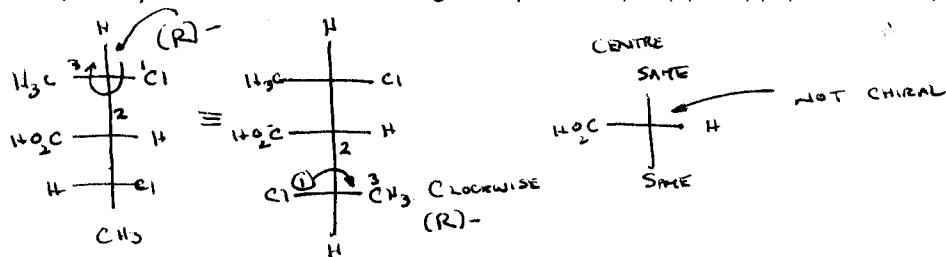 H
(R)-
H₃C 3 1 Cl
2
HO₂C H
H Cl
CH₃
≡
H
H₃C Cl
HO₂C H
2
Cl ① 3 CH₃ CLOCKWISE
(R)-
H
CENTRE
SAME
HO₂C H
NOT CHIRAL
SAME